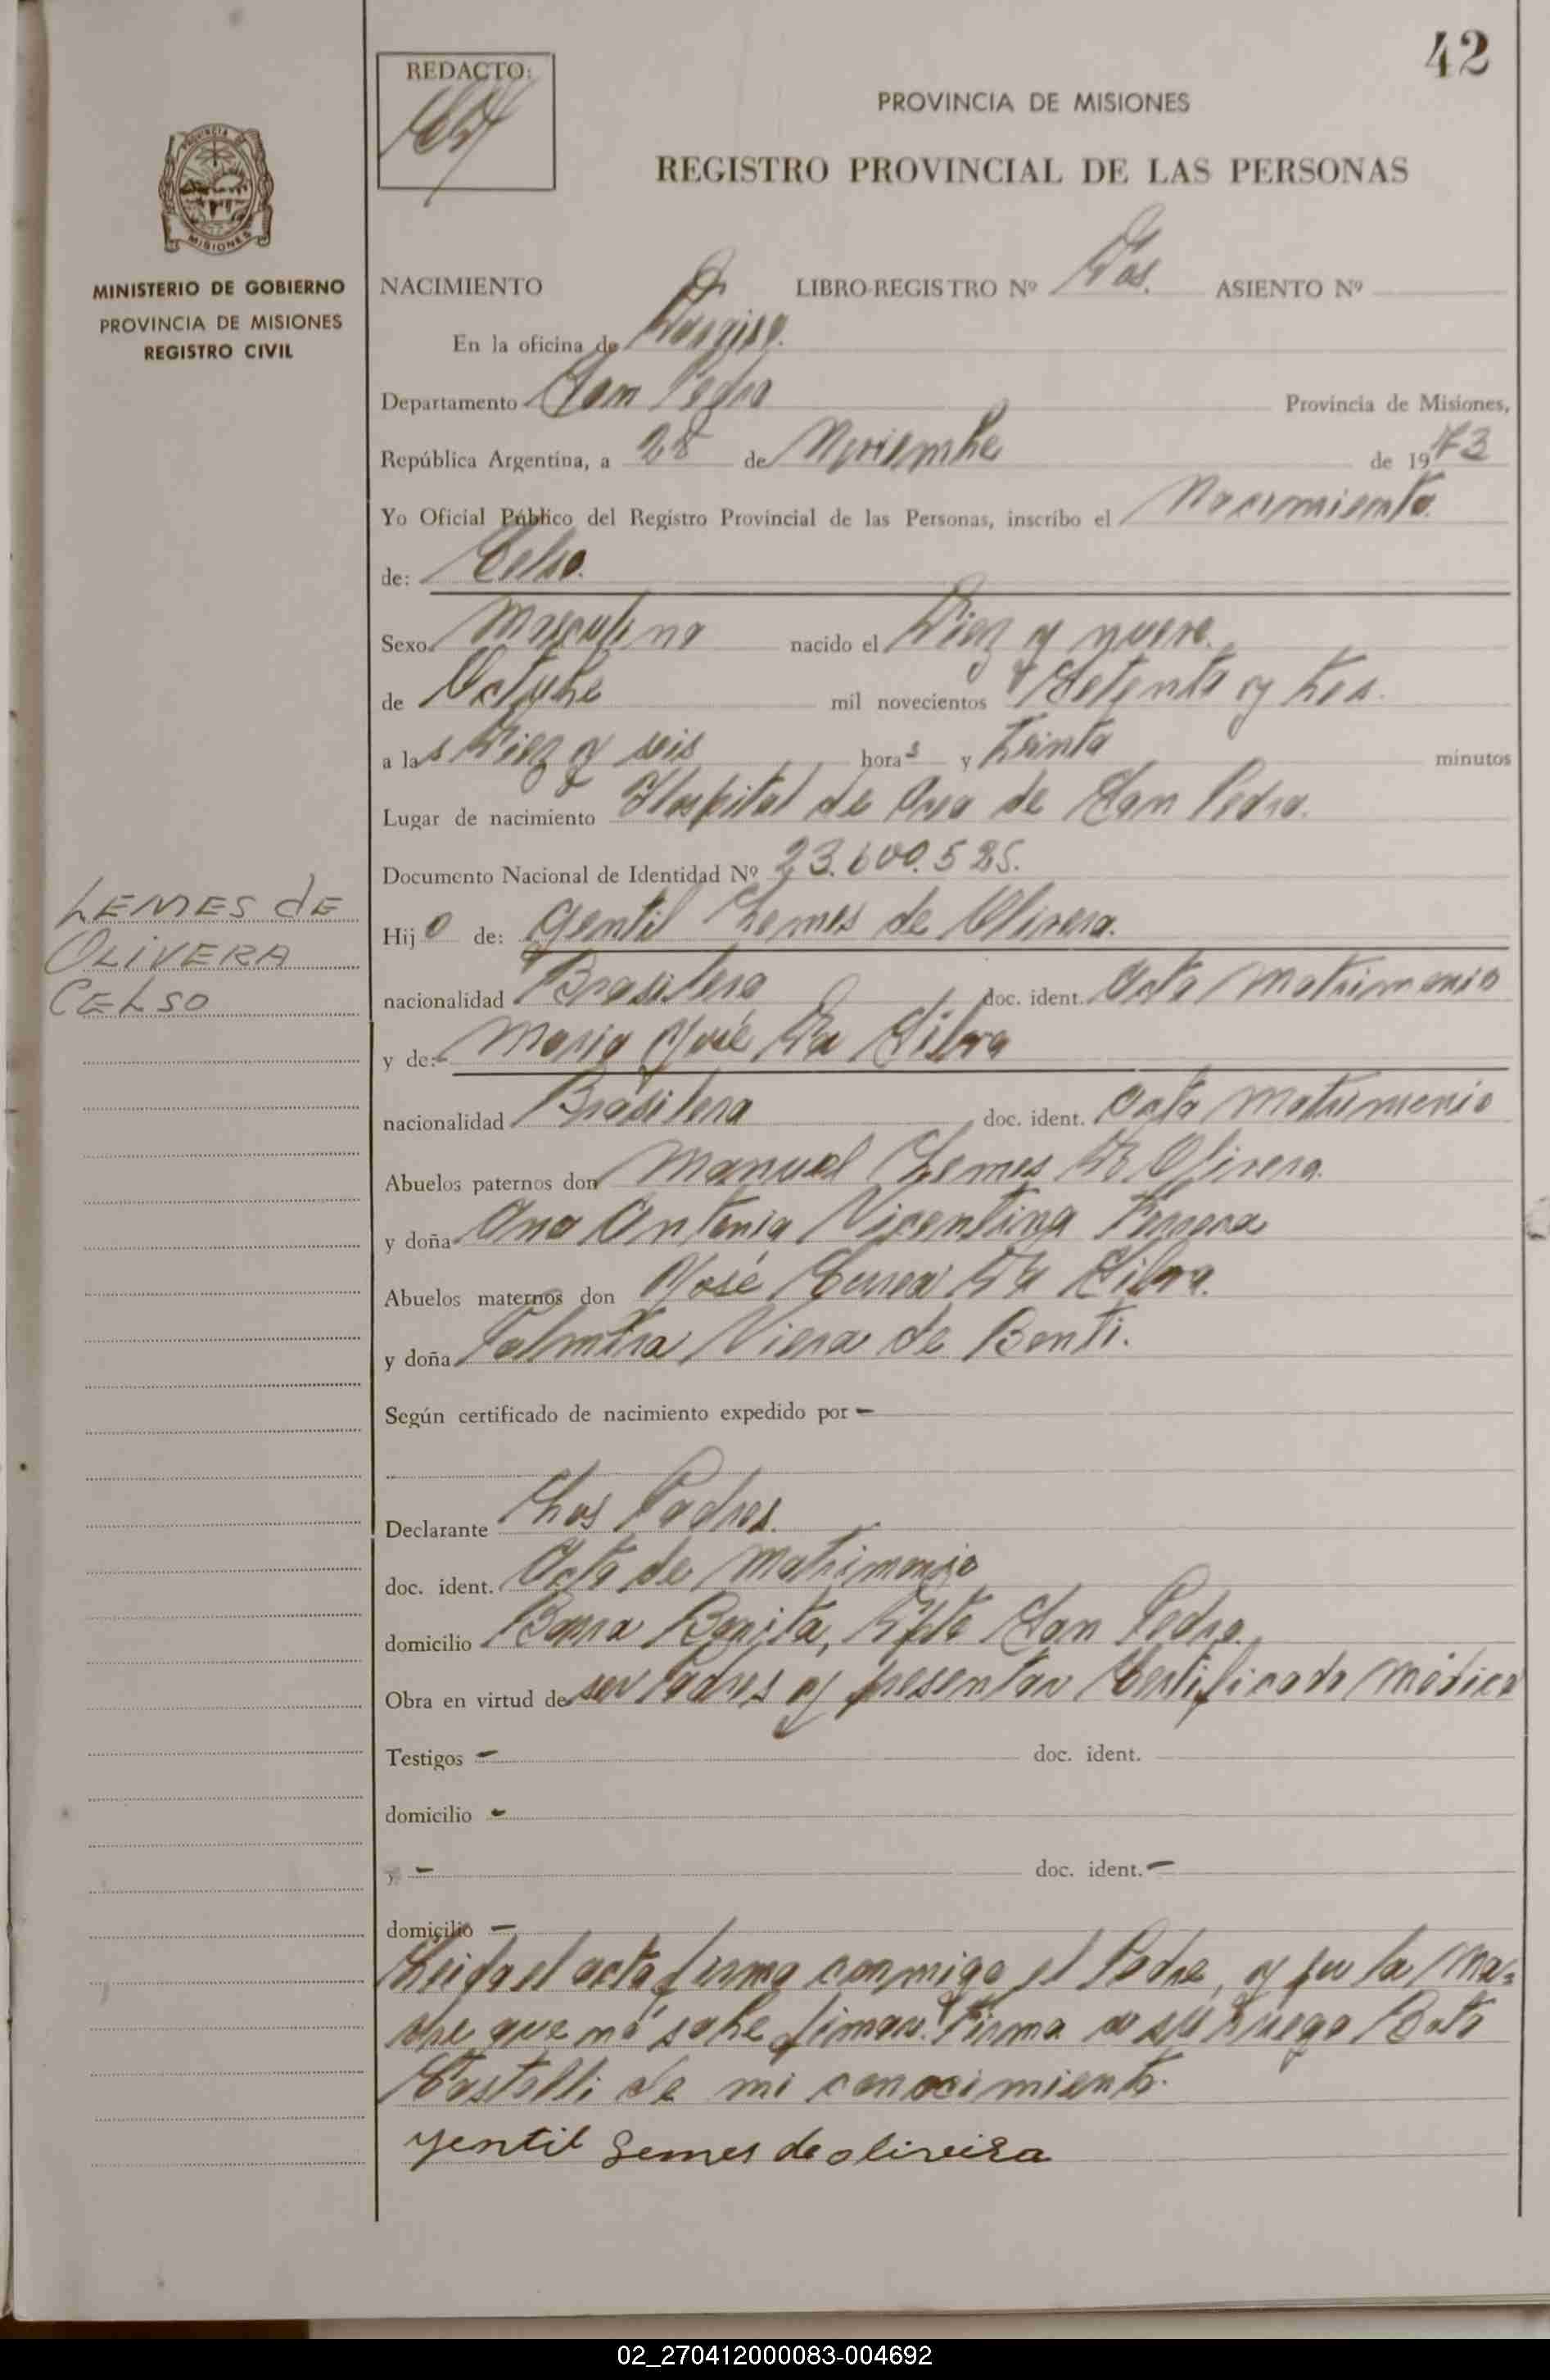 42
REDACTO:
PROVINCIA DE MISIONES
REGISTRO PROVINCIAL DE LAS PERSONAS
PROVINCIA DE
MISIONES
MINISTERIO DE GOBIERNO
PROVINCIA DE MISIONES
REGISTRO CIVIL
NACIMIENTO LIBRO-REGISTRO Nº Dos. ASIENTO Nº
En la oficina de
Departamento San Pedro Provincia de Misiones,
República Argentina, a 28 de Noviembre de 1973
Yo Oficial Público del Registro Provincial de las Personas, inscribo el Nacimiento
de: Celso.
Sexo Masculino nacido el Diez y nueve
de Octubre mil novecientos Setenta y tres.
a las Diez y seis horas y treinta minutos
Lugar de nacimiento Hospital de Area de San Pedro.
Documento Nacional de Identidad Nº 23.600.525.
LEMES DE
OLIVERA
CELSO
Hijo de: Gentil Lemes de Olivera.
nacionalidad Brasilera doc. ident. Acta Matrimonio
y de: Maria José Da Silva
nacionalidad Brasilera doc. ident. Acta Matrimonio
Abuelos paternos don Manuel Lemes De Olivera.
y doña Ana Antonia Vicentina
Abuelos maternos don José Da Silva.
y doña Viera de
Según certificado de nacimiento expedido por -
Declarante Los Padres.
doc. ident. Acta de Matrimonio
domicilio Barra Bonita, Dpto San Pedro.
Obra en virtud de ser Padres y presentar Certificado Médico
Testigos - doc. ident.
domicilio -
y - doc. ident. -
domicilio -
Leida el acta firma conmigo el Padre, y por la Ma=
dre que no sabe firmar. Firma a su ruego
Castelli de mi conocimiento.
Gentil Lemes de oliveira
02_270412000083-004692